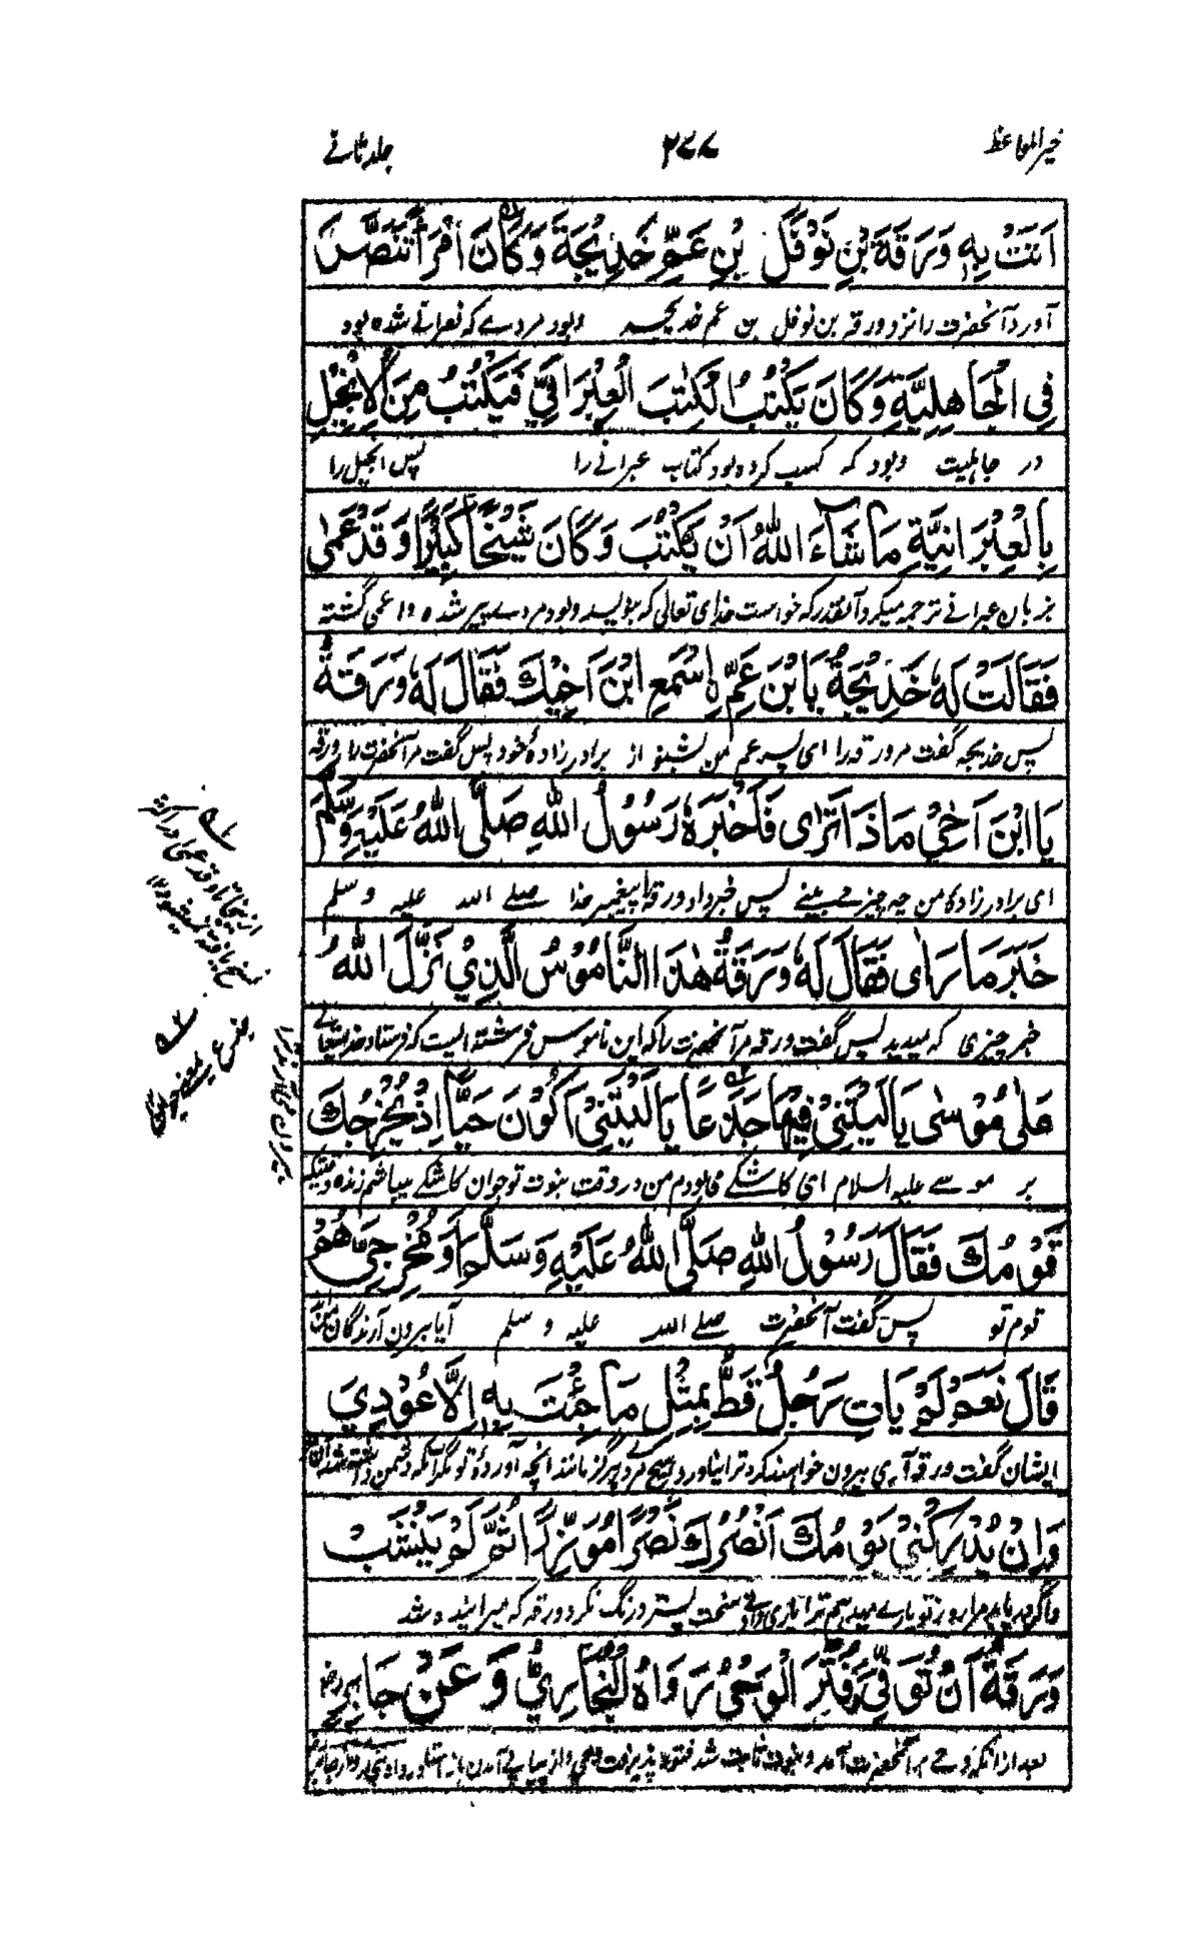 خیر المواعظ ۲۷۷ جلد ثانے
اَتَتْ بِهٖ وَرَقَةَ بْنِ نَوْفَلَ بْنِ عَمِّ خَدِيْجَةَ وَكَانَ اَمْرَأً تَنَصَّرَ
آورد آنحضرت را نزد ورقہ بن نوفل بن عم خدیجہ وبود مردے کہ نصرانے شدہ بود
فِي الْجَاهِلِيَّةِ وَكَانَ يَكْتُبُ الْكِتٰبَ الْعِبْرَانِيَّ فَيَكْتُبُ مِنَ الْاِنْجِيْلِ
در جاہلیت وبود کہ کسب کردہ بود کتاب عبرانے را پس انجیل را
بِالْعِبْرَانِيَّةِ مَا شَآءَ اللّٰهُ اَنْ يَكْتُبَ وَكَانَ شَيْخًا كَبِيْرًا وَقَدْ عَمٰى
بزبان عبرانے ترجمہ میکرد آنقدر کہ خواست خدای تعالی کہ بنویسد وبود مردے پیر شدہ و اعمی گشتہ
فَقَالَتْ لَهٗ خَدِيْجَةُ يَا بْنَ عَمِّ اِسْمَعِ ابْنَ اَخِيْكَ فَقَالَ لَهٗ وَرَقَةُ
پس خدیجہ گفت مر ورقہ را ای پسر عم من بشنو از برادر زادۂ خود پس گفت مر آنحضرت را ورقہ
يَا ابْنَ اَخِيْ مَاذَا تَرٰى فَاَخْبَرَهٗ رَسُوْلُ اللّٰهِ صَلَّى اللّٰهُ عَلَيْهِ وَسَلَّمَ
ای برادر زادۂ من چہ چیز مے بینے پس خبر داد ورقہ را پیغمبر خدا صلے اللہ علیہ وسلم
خَبَرَ مَا رَاٰى فَقَالَ لَهٗ وَرَقَةُ هٰذَا النَّامُوْسُ الَّذِيْ نَزَّلَ اللّٰهُ
خبر چیزی کہ میدید پس گفت ورقہ مر آنحضرت را کہ این ناموس فرشتہ ایست کہ فرستاد خدایتعالے
عَلٰى مُوْسٰى يَا لَيْتَنِيْ فِيْهَا جَذَعًا يَا لَيْتَنِيْ اَكُوْنَ حَيًّا اِذْ يُخْرِجُكَ
بر موسے علیہ السلام ای کاشکے مے بودم من در وقت نبوت تو جوان کاشکے میباشم زندہ وقتیکہ
قَوْمُكَ فَقَالَ رَسُوْلُ اللّٰهِ صَلَّى اللّٰهُ عَلَيْهِ وَسَلَّمَ اَوَ مُخْرِجِيَّ هُمْ
قوم تو پس گفت آنحضرت صلے اللہ علیہ وسلم آیا بیرون آرندگان من
قَالَ نَعَمْ لَمْ يَاتِ رَجُلٌ قَطُّ بِمِثْلِ مَا جِئْتَ بِهٖ اِلَّا عُوْدِيَ
ایشان گفت ورقہ آری بیرون خواہند کرد ترا نیاورد ہیچ مرد ہرگز مانند آنچہ آوردۂ تو مگر آنکہ دشمن داشتہ شد
وَاِنْ يُدْرِكْنِيْ يَوْمُكَ اَنْصُرْكَ نَصْرًا مُوَزَّرًا ثُمَّ لَمْ يَنْشَبْ
واگر دریابد مرا روز تو یارے میدہم ترا یاری دادنے سخت پستر درنگ نکرد ورقہ کہ میرانیدہ شد
وَرَقَةُ اَنْ تُوُفِّيَ وَفَتَرَ الْوَحْيُ رَوَاهُ الْبُخَارِيُّ وَعَنْ جَابِرٍ
بعد ازانکہ وحی بر آنحضرت آمد ونبوت ثابت شد